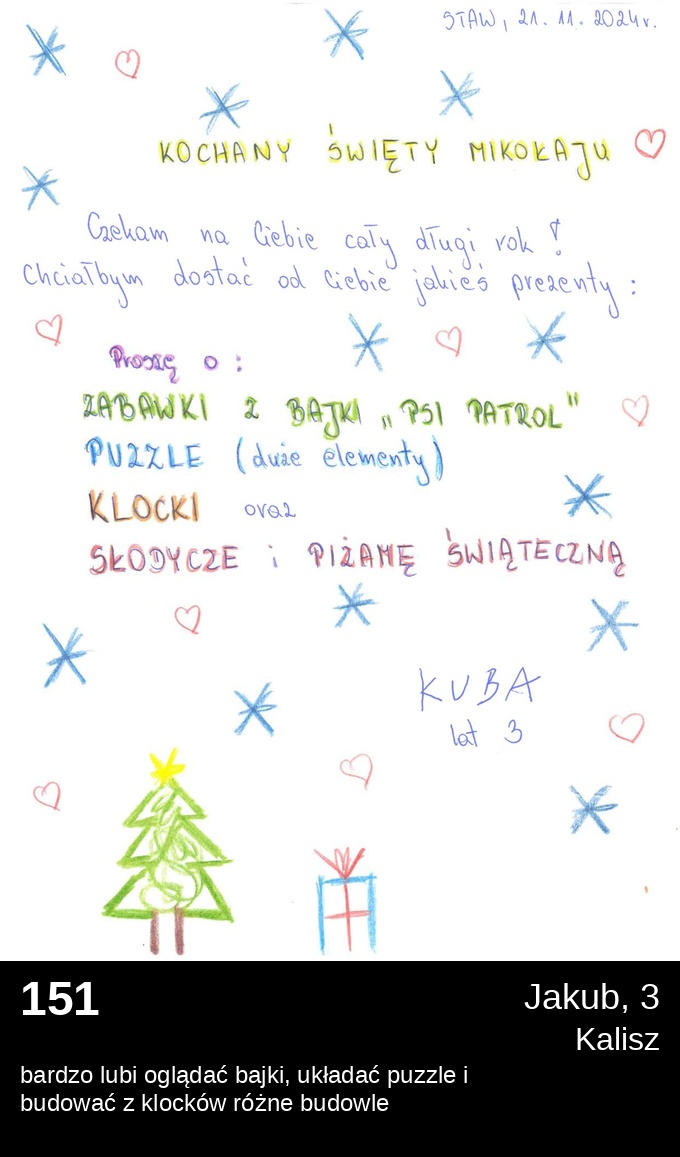 STAW, 21. 11. 2024r.
KOCHANY ŚWIĘTY MIKOŁAJU
Czekam na Ciebie cały długi rok !
Chciałbym dostać od Ciebie jakieś prezenty :
Proszę o :
ZABAWKI Z BAJKI „PSI PATROL"
PUZZLE (duże elementy)
KLOCKI oraz
SŁODYCZE i PIŻAMĘ ŚWIĄTECZNĄ
KUBA
lat 3
151
Jakub, 3
Kalisz
bardzo lubi oglądać bajki, układać puzzle i
budować z klocków różne budowle